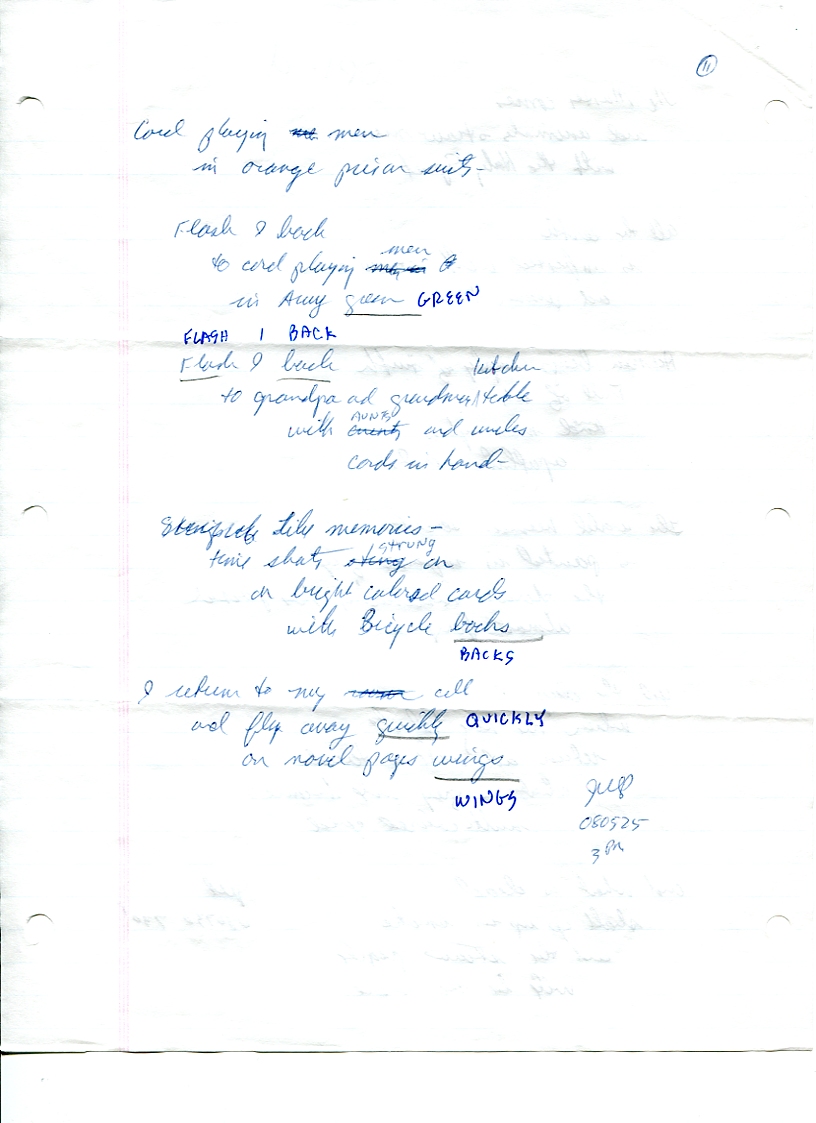 11
Card playing men
in orange prison suits-
Flash I back
men
to card playing
in Army green GREEN
FLASH I BACK
Flash I back kitchen
to grandpa and grandma/table
AUNTS
with aunts and uncles
cards in hand-
Like memories-
STRUNG
time shats strung on
on bright colored cards
with Bicycle backs
BACKS
I return to my cell
and flip away quickly QUICKLY
on novel pages wings
WINGS
080525
3 PM